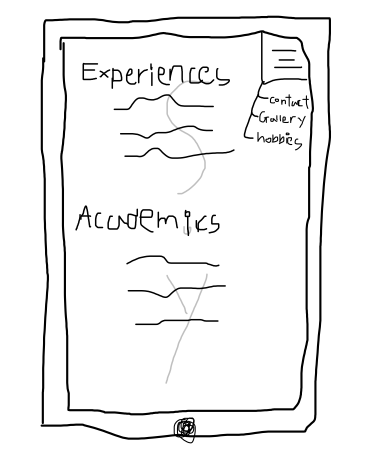 Experiences
contact
Gallery
hobbies
Academiks